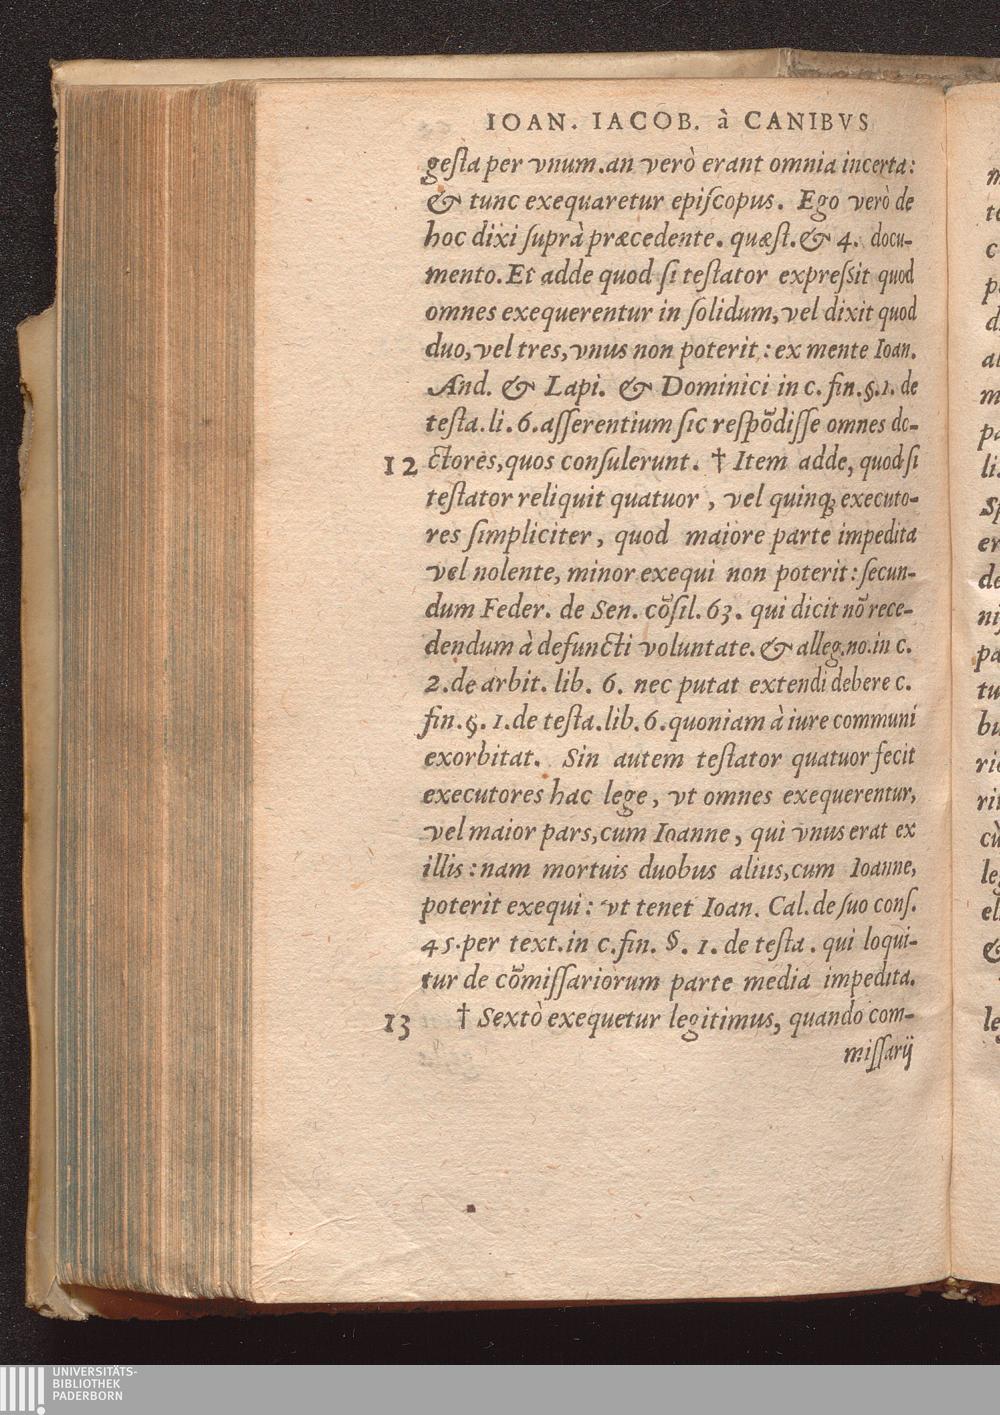 IOAN. IACOB. à CANIBVS
geſta per vnum. an verò erant omnia incerta:
& tunc exequaretur epiſcopus. Ego verò de
hoc dixi ſuprà præcedente. quæſt. & 4. docu-
mento. Et adde quod ſi teſtator expreſsit quod
omnes exequerentur in ſolidum, vel dixit quod
duo, vel tres, vnus non poterit: ex mente Ioan.
And. & Lapi. & Dominici in c. fin. §. 1. de
teſta. li. 6. aſſerentium ſic reſpõdiſſe omnes do-
12 ctores, quos conſulerunt. † Item adde, quod ſi
teſtator reliquit quatuor, vel quinqꝫ executo-
res ſimpliciter, quod maiore parte impedita
vel nolente, minor exequi non poterit: ſecun-
dum Feder. de Sen. cõſil. 63. qui dicit nõ rece-
dendum à defuncti voluntate. & alleg. no. in c.
2. de arbit. lib. 6. nec putat extendi debere c.
fin. §. 1. de teſta. lib. 6. quoniam à iure communi
exorbitat. Sin autem teſtator quatuor fecit
executores hac lege, vt omnes exequerentur,
vel maior pars, cum Ioanne, qui vnus erat ex
illis: nam mortuis duobus alius, cum Ioanne,
poterit exequi: vt tenet Ioan. Cal. de ſuo conſ.
45. per text. in c. fin. §. 1. de teſta. qui loqui-
tur de cõmiſſariorum parte media impedita.
13 † Sextò exequetur legitimus, quando com-
miſſarij
UNIVERSITÄTS-
BIBLIOTHEK
PADERBORN